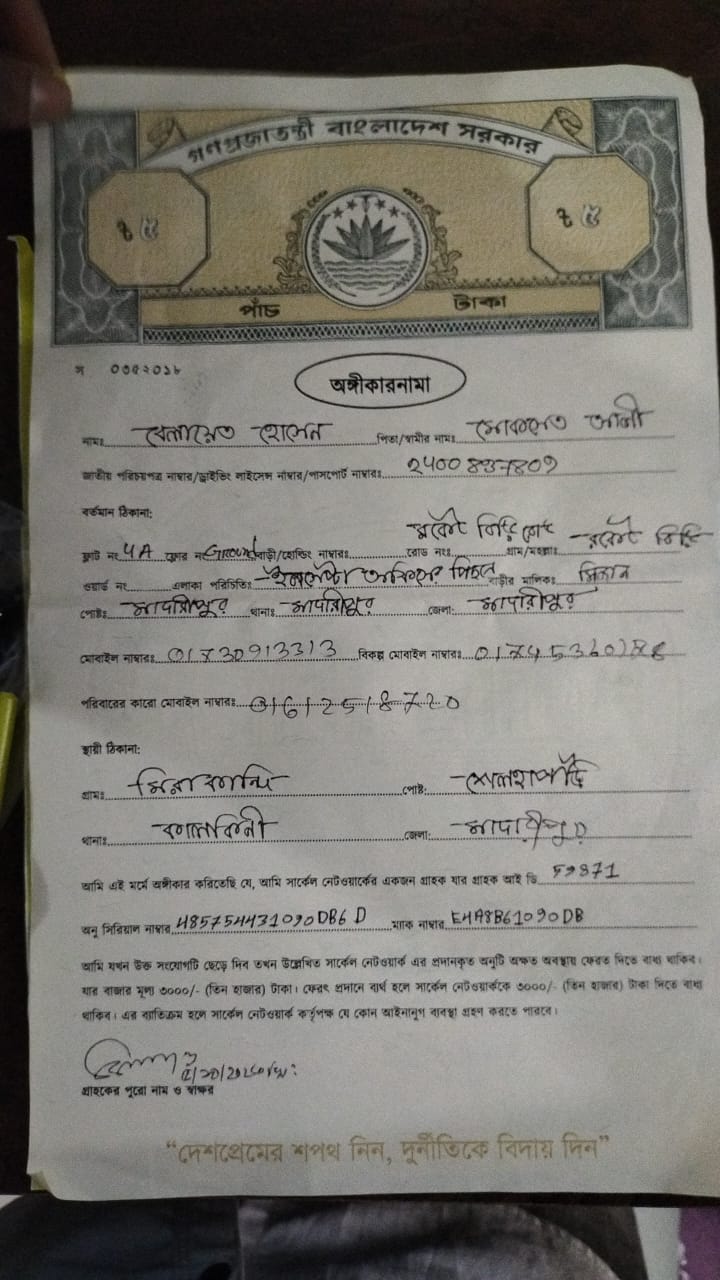 গণপ্রজাতন্ত্রী বাংলাদেশ সরকার
৳ ৫ ৳ ৫
পাঁচ টাকা
স ০৩৫২০১৮
অঙ্গীকারনামা
নামঃ বেলায়েত হোসেন পিতা/স্বামীর নামঃ মোকলেত আলী
জাতীয় পরিচয়পত্র নাম্বার/ড্রাইভিং লাইসেন্স নাম্বার/পাসপোর্ট নাম্বারঃ 2400837809
বর্তমান ঠিকানা:
ফ্লাট নং 4A ফ্লোর নং Ground বাড়ী/হোল্ডিং নাম্বারঃ রোড নংঃ গ্রাম/মহল্লাঃ
ওয়ার্ড নং এলাকা পরিচিতিঃ অফিসের পিছনে বাড়ীর মালিকঃ মিজান
পোষ্টঃ মাদারীপুর থানাঃ মাদারীপুর জেলা: মাদারীপুর
মোবাইল নাম্বারঃ 01730913313 বিকল্প মোবাইল নাম্বারঃ
পরিবারের কারো মোবাইল নাম্বারঃ 01612518720
স্থায়ী ঠিকানা:
গ্রামঃ পোষ্ট:
থানাঃ কালকিনী জেলা: মাদারীপুর
আমি এই মর্মে অঙ্গীকার করিতেছি যে, আমি সার্কেল নেটওয়ার্কের একজন গ্রাহক যার গ্রাহক আই ডি 59871
অনু সিরিয়াল নাম্বার 485754431090DB6D ম্যাক নাম্বার E4A8B61090DB
আমি যখন উক্ত সংযোগটি ছেড়ে দিব তখন উল্লেখিত সার্কেল নেটওয়ার্ক এর প্রদানকৃত অনুটি অক্ষত অবস্থায় ফেরত দিতে বাধ্য থাকিব।
যার বাজার মূল্য ৩০০০/- (তিন হাজার) টাকা। ফেরৎ প্রদানে ব্যর্থ হলে সার্কেল নেটওয়ার্ককে ৩০০০/- (তিন হাজার) টাকা দিতে বাধ্য
থাকিব। এর ব্যতিক্রম হলে সার্কেল নেটওয়ার্ক কর্তৃপক্ষ যে কোন আইনানুগ ব্যবস্থা গ্রহণ করতে পারবে।
গ্রাহকের পুরো নাম ও স্বাক্ষর
“দেশপ্রেমের শপথ নিন, দুর্নীতিকে বিদায় দিন”